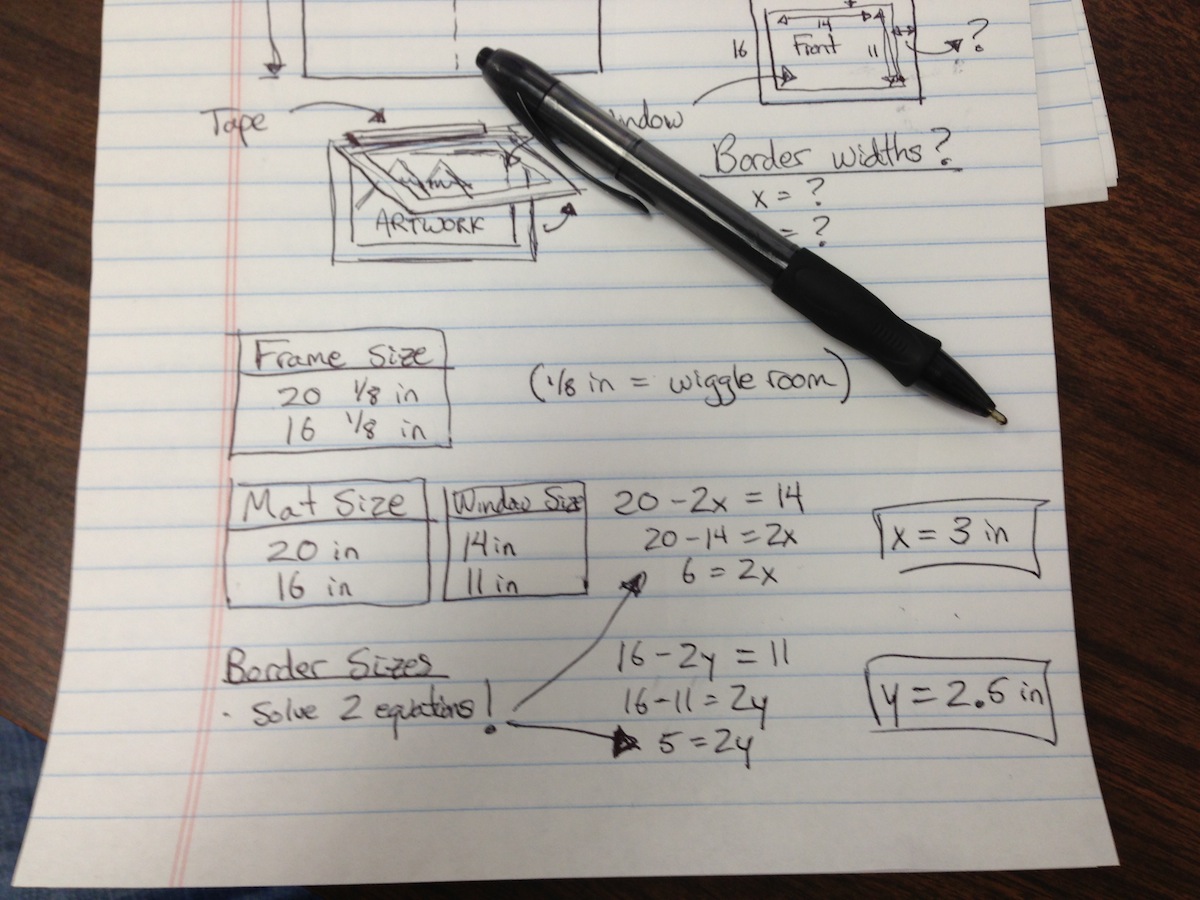 14
16 Front 11 ?
Tape
Border widths?
x = ?
= ?
ARTWORK
Frame Size
20 1/8 in
16 1/8 in
(1/8 in = wiggle room)
Mat Size
20 in
16 in
Window Size
14 in
11 in
20 - 2x = 14
20 - 14 = 2x
6 = 2x
x = 3 in
Border Sizes
· Solve 2 equations!
16 - 2y = 11
16 - 11 = 2y
5 = 2y
y = 2.5 in